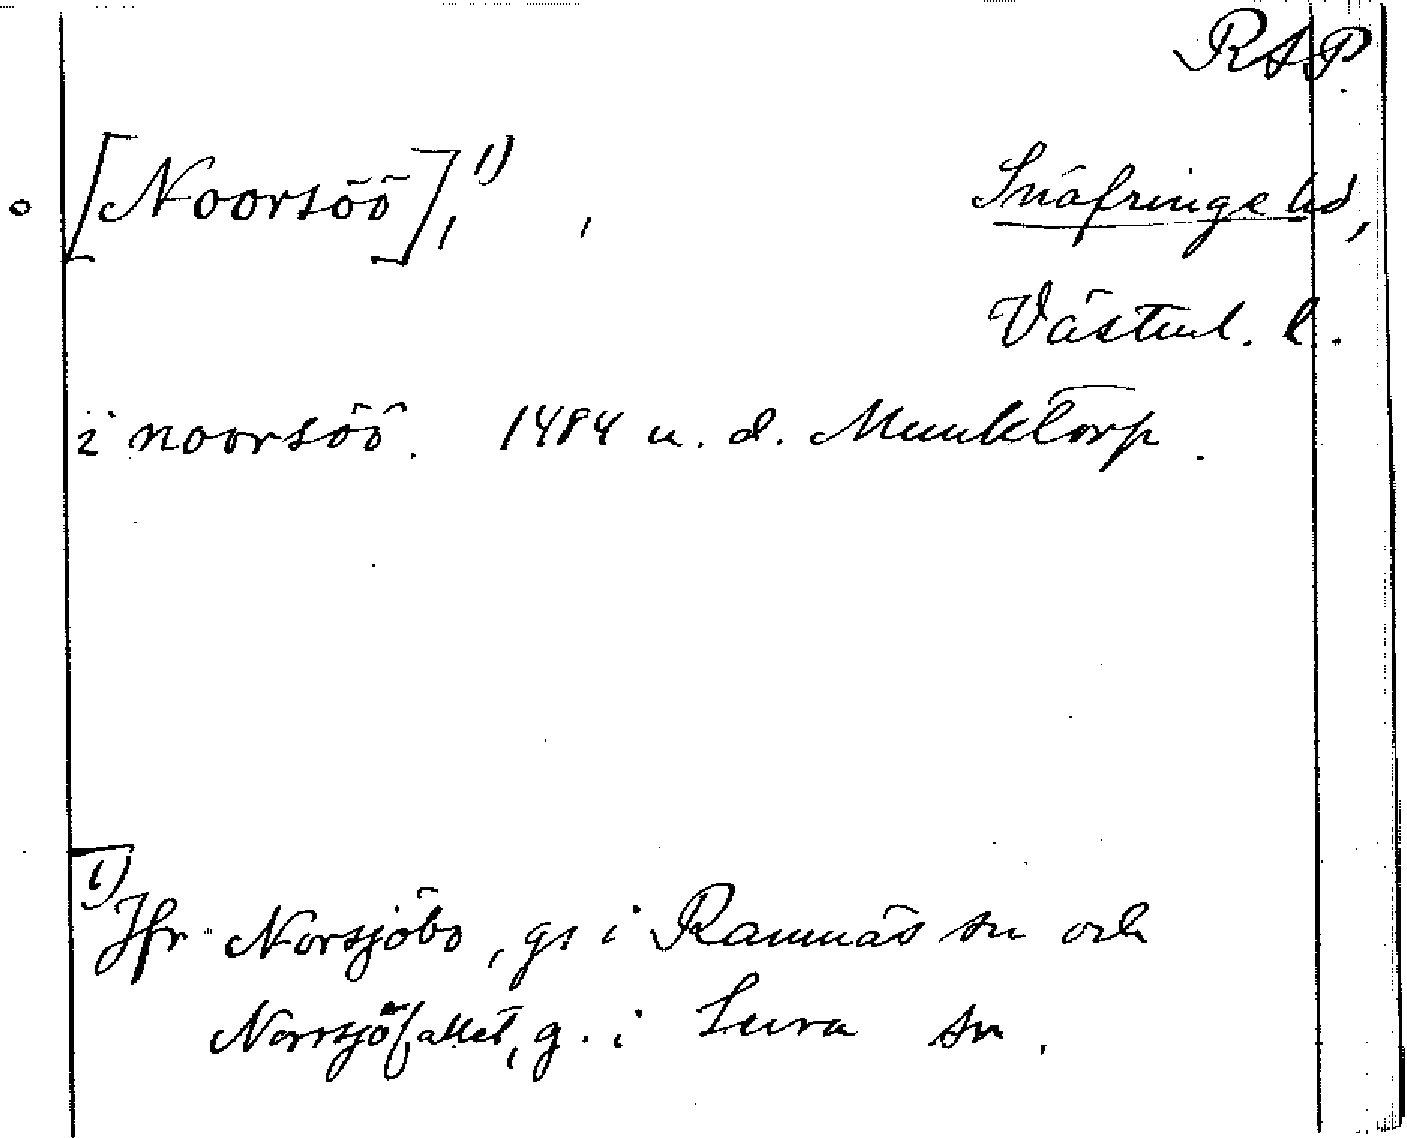 RAP
[Noorsöö],¹⁾ , Snäfringe hd,
Västml. l.
i noorsöö. 1484 u. d. Munktorp.
¹⁾ Jfr Norsjöbo, gs i Ramnäs sn och
Norrsjöfallet, g. i Sura sn.